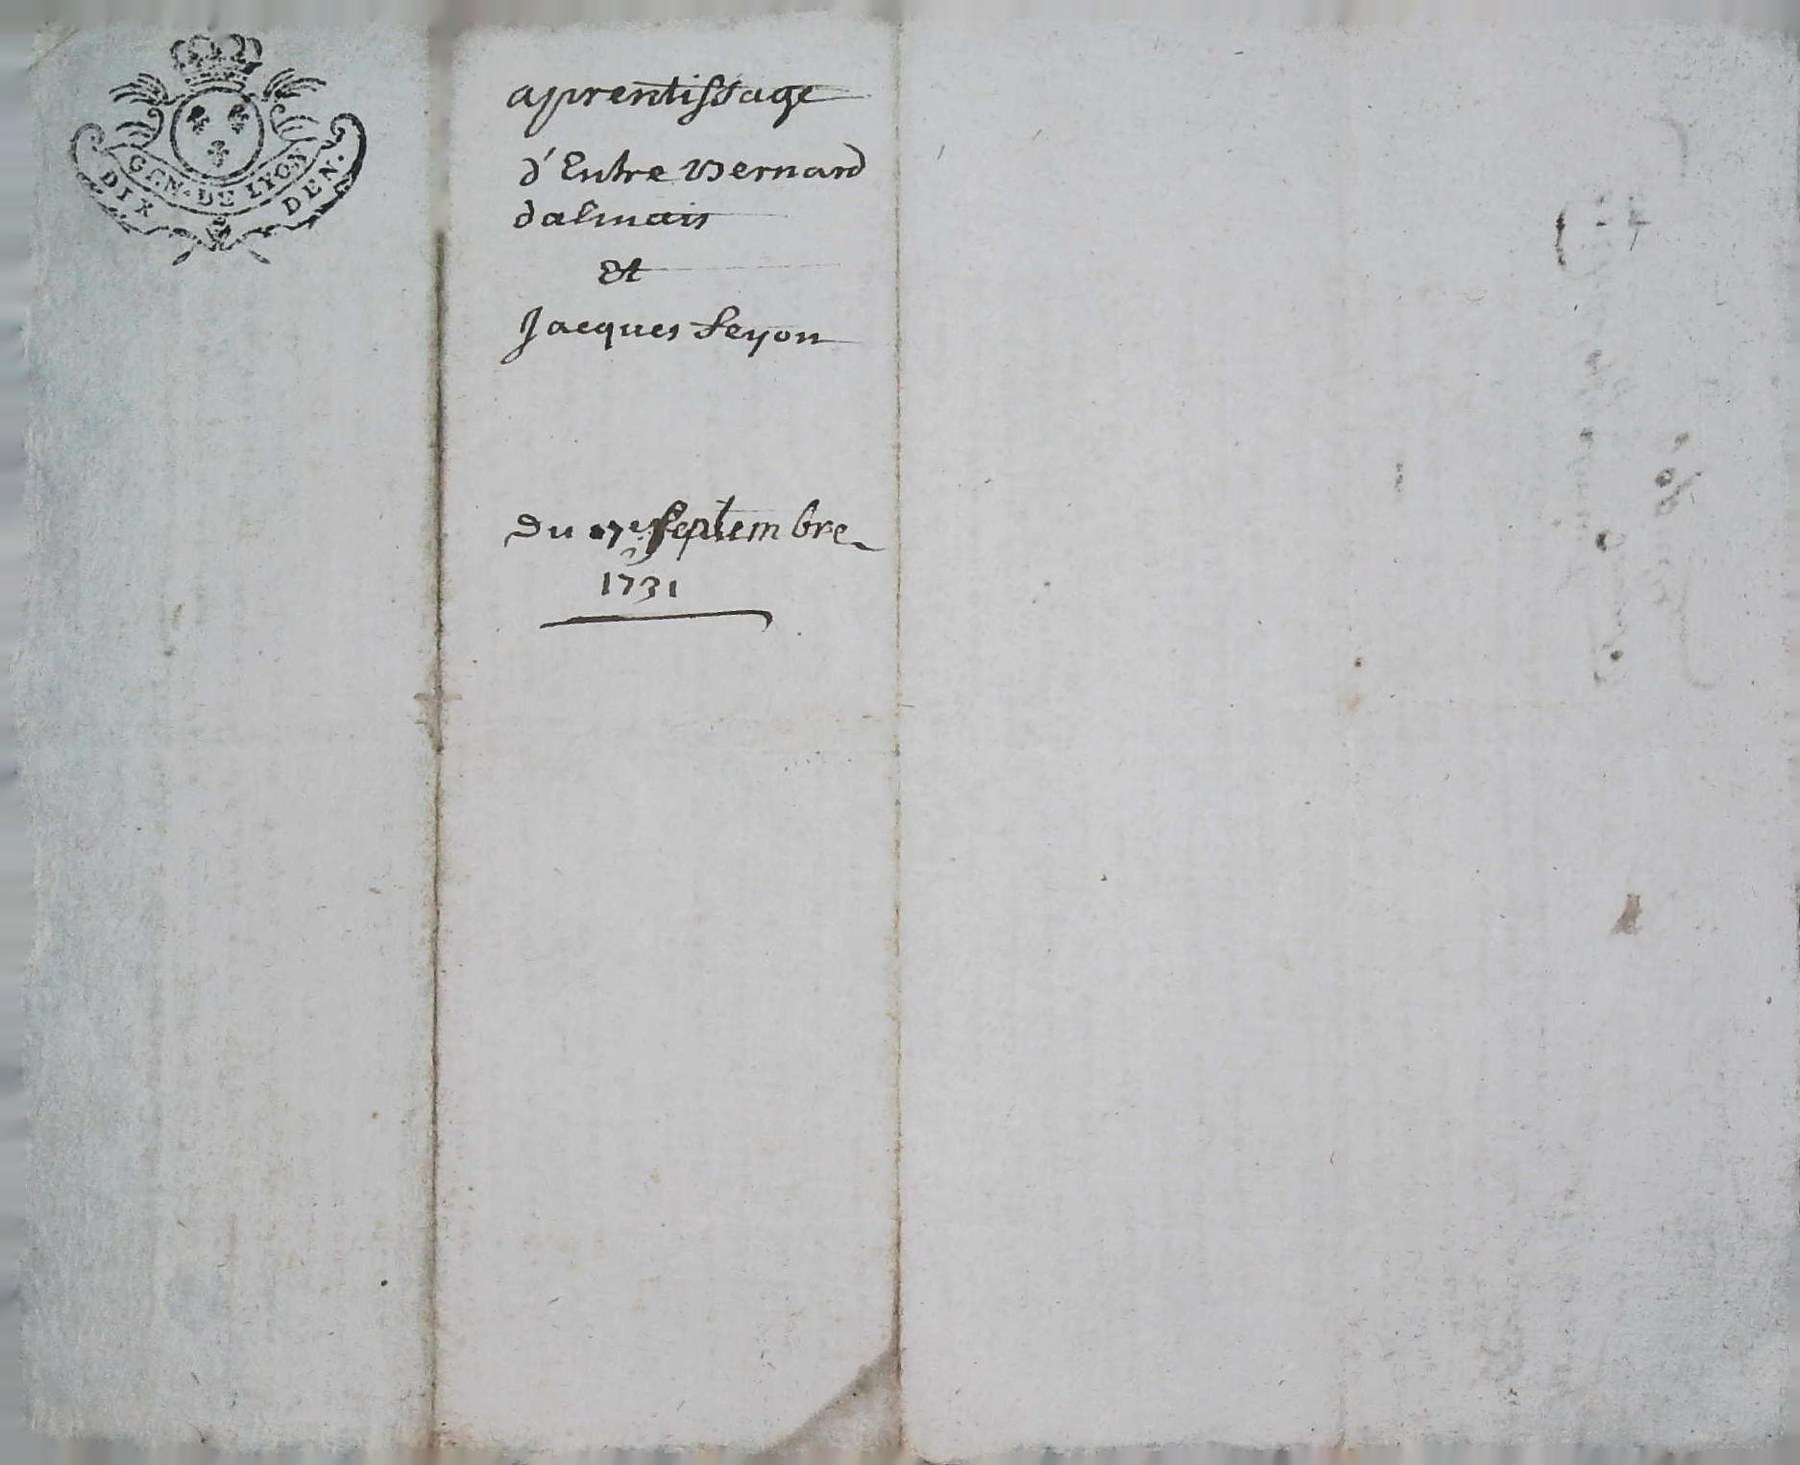 GEN. DE LYON
DIX DEN.
aprentissage
d'Entre Bernard
dalmais
Et
Jacques feyon
Du 17e Septembre
1731